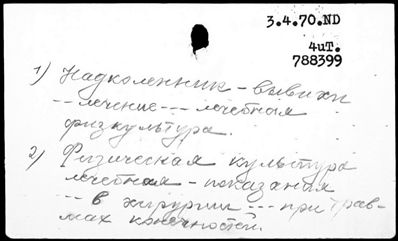 3.4.70.ND
4иT.
788399
1) Надколенник - вывихи
-- лечение --- лечебная
физкультура.
2) Физическая культура
лечебная - показания
-- в хирургии --- при трав-
мах конечностей.